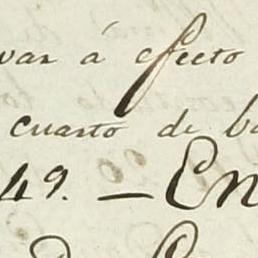 var á efecto
cuarto de ba
49. — En